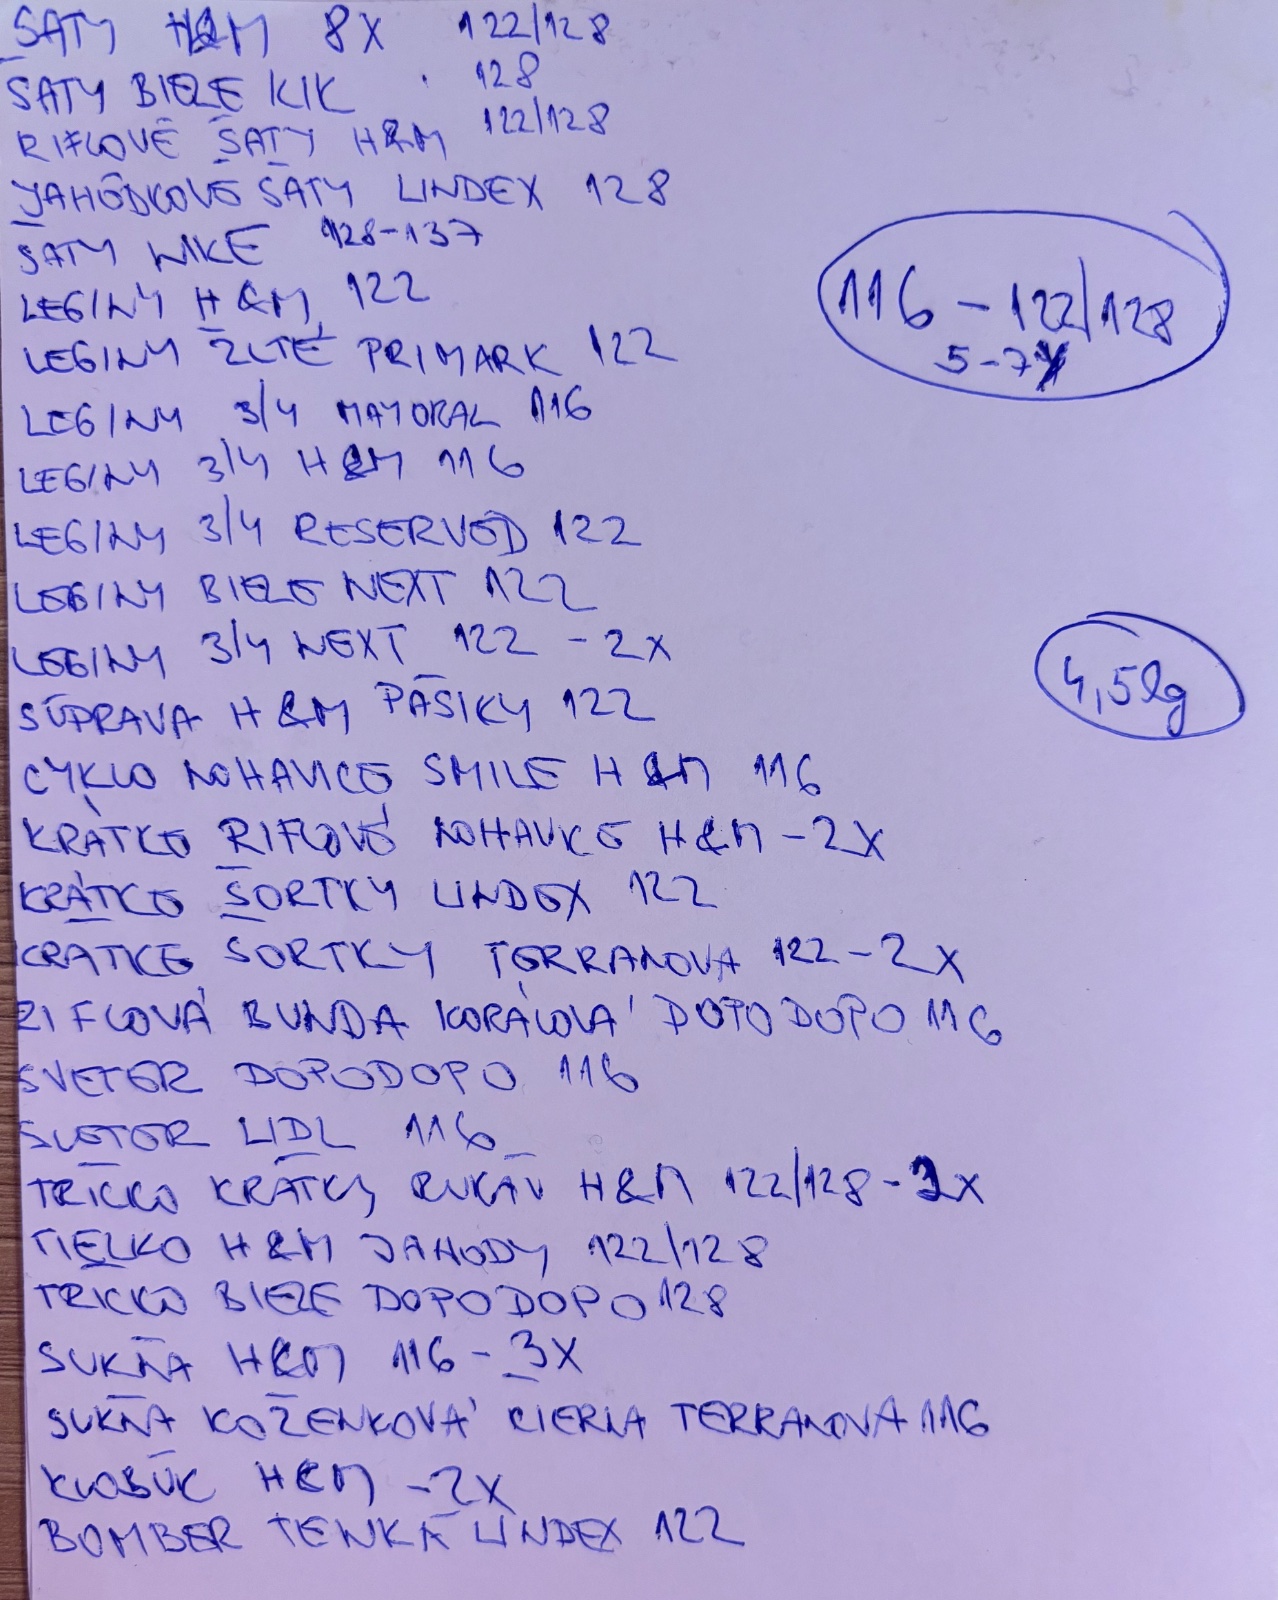 ŠATY H&M 8X 122/128
ŠATY BIELE KIK 128
RIFLOVÉ ŠATY H&M 122/128
JAHÔDKOVÉ ŠATY LINDEX 128
ŠATY NIKE 128-137
LEGINY H&M 122
LEGINY ŽLTÉ PRIMARK 122
LEGINY 3/4 MAYORAL 116
LEGINY 3/4 H&M 116
LEGINY 3/4 RESERVED 122
LEGINY BIELE NEXT 122
LEGINY 3/4 NEXT 122 - 2X
SÚPRAVA H&M PÁSIKY 122
CYKLO NOHAVICE SMILE H&M 116
KRÁTKE RIFLOVÉ NOHAVICE H&M - 2X
KRÁTKE ŠORTKY LINDEX 122
KRATKE ŠORTKY TERRANOVA 122 - 2X
RIFLOVÁ BUNDA KORÁLOVÁ DOPODOPO 116
SVETER DOPODOPO 116
SVETER LIDL 116
TRIČKO KRÁTKY RUKÁV H&M 122/128 - 2X
TIELKO H&M JAHODY 122/128
TRICKO BIELE DOPODOPO 128
SUKŇA H&M 116 - 3X
SUKŇA KOŽENKOVÁ CIERNA TERRANOVA 116
KLOBÚK H&M - 2X
BOMBER TENKÁ LINDEX 122
116 - 122/128
5-7Y
4,5kg